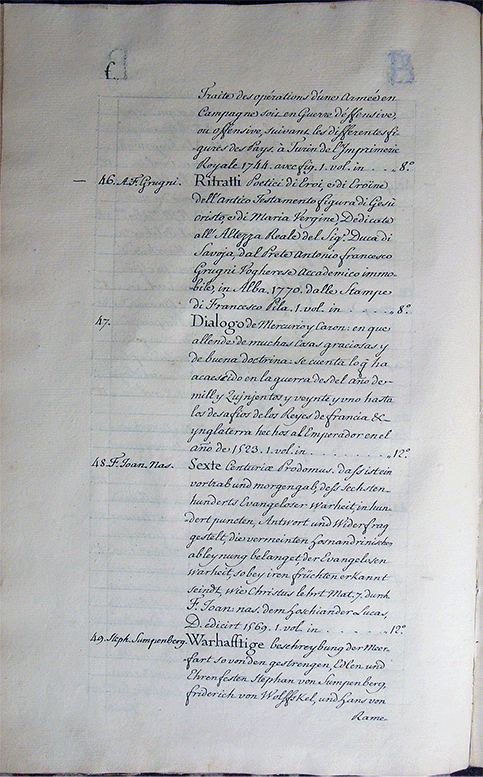 f.
Traite des opérations d'une Armée en
Campagne soit en Guerre deffensive,
ou offensive, suivant les differentes fi-
gures des Pays. à Turin de l'Imprimerie
Royale 1744. avec fig. 1. vol. in . . . 8°
— 46. A. F. Grugni. Ritratti Poetici di Eroi, e di Eroine
dell'Antico Testamento figura di Gesù
cristo, e di Maria Vergine, Dedicate
all'Altezza Reale del Sig.r Duca di
Savoja, dal Prete Antonio francesco
Grugni Vogherese Accademico immo-
bile, in Alba. 1770. dalle Stampe
di Francesco Pila. 1. vol. in . . . . 8°
47. Dialogo de Mercurio y Caron: en que
allende de muchas cosas graciosas y
de buena doctrina: se cuenta loq̃ ha
acaescido en la guerra desdel año de
mill y Quinientos y veynte y uno hasta
los desafios de los Reyes de francia &
ynglaterra hechos al Emperador en el
año de 1523. 1. vol. in . . . . . . . 12°
48. F. Ioan. Nas. Sexte Centuriæ Prodomus. dass ist ein
vortrab und morgengab, dess Sechsten
hunderts Evangeloser Warheit, in hun-
dert puncten, Antwort und Widerfrag
gestelt, die vermeinten Hosnandrinischen
ableynung belanget der Evangelosen
Warheit, so bey iren früchten erkannt
seindt, Wie Christus lehrt Mat. 7. durch
F. Ioan: nas. dem Hoschiander Lucas,
D. edicirt 1569. 1. vol. in . . . . . . 12°
49. Steph. Sumpenberg. Warhafftige beschreybung der Mor-
fart so von den gestrengen, Edlen und
Ehrenfesten Stephan von Sumpenberg,
friderich von Wolffskel, und Hans von
Rame-